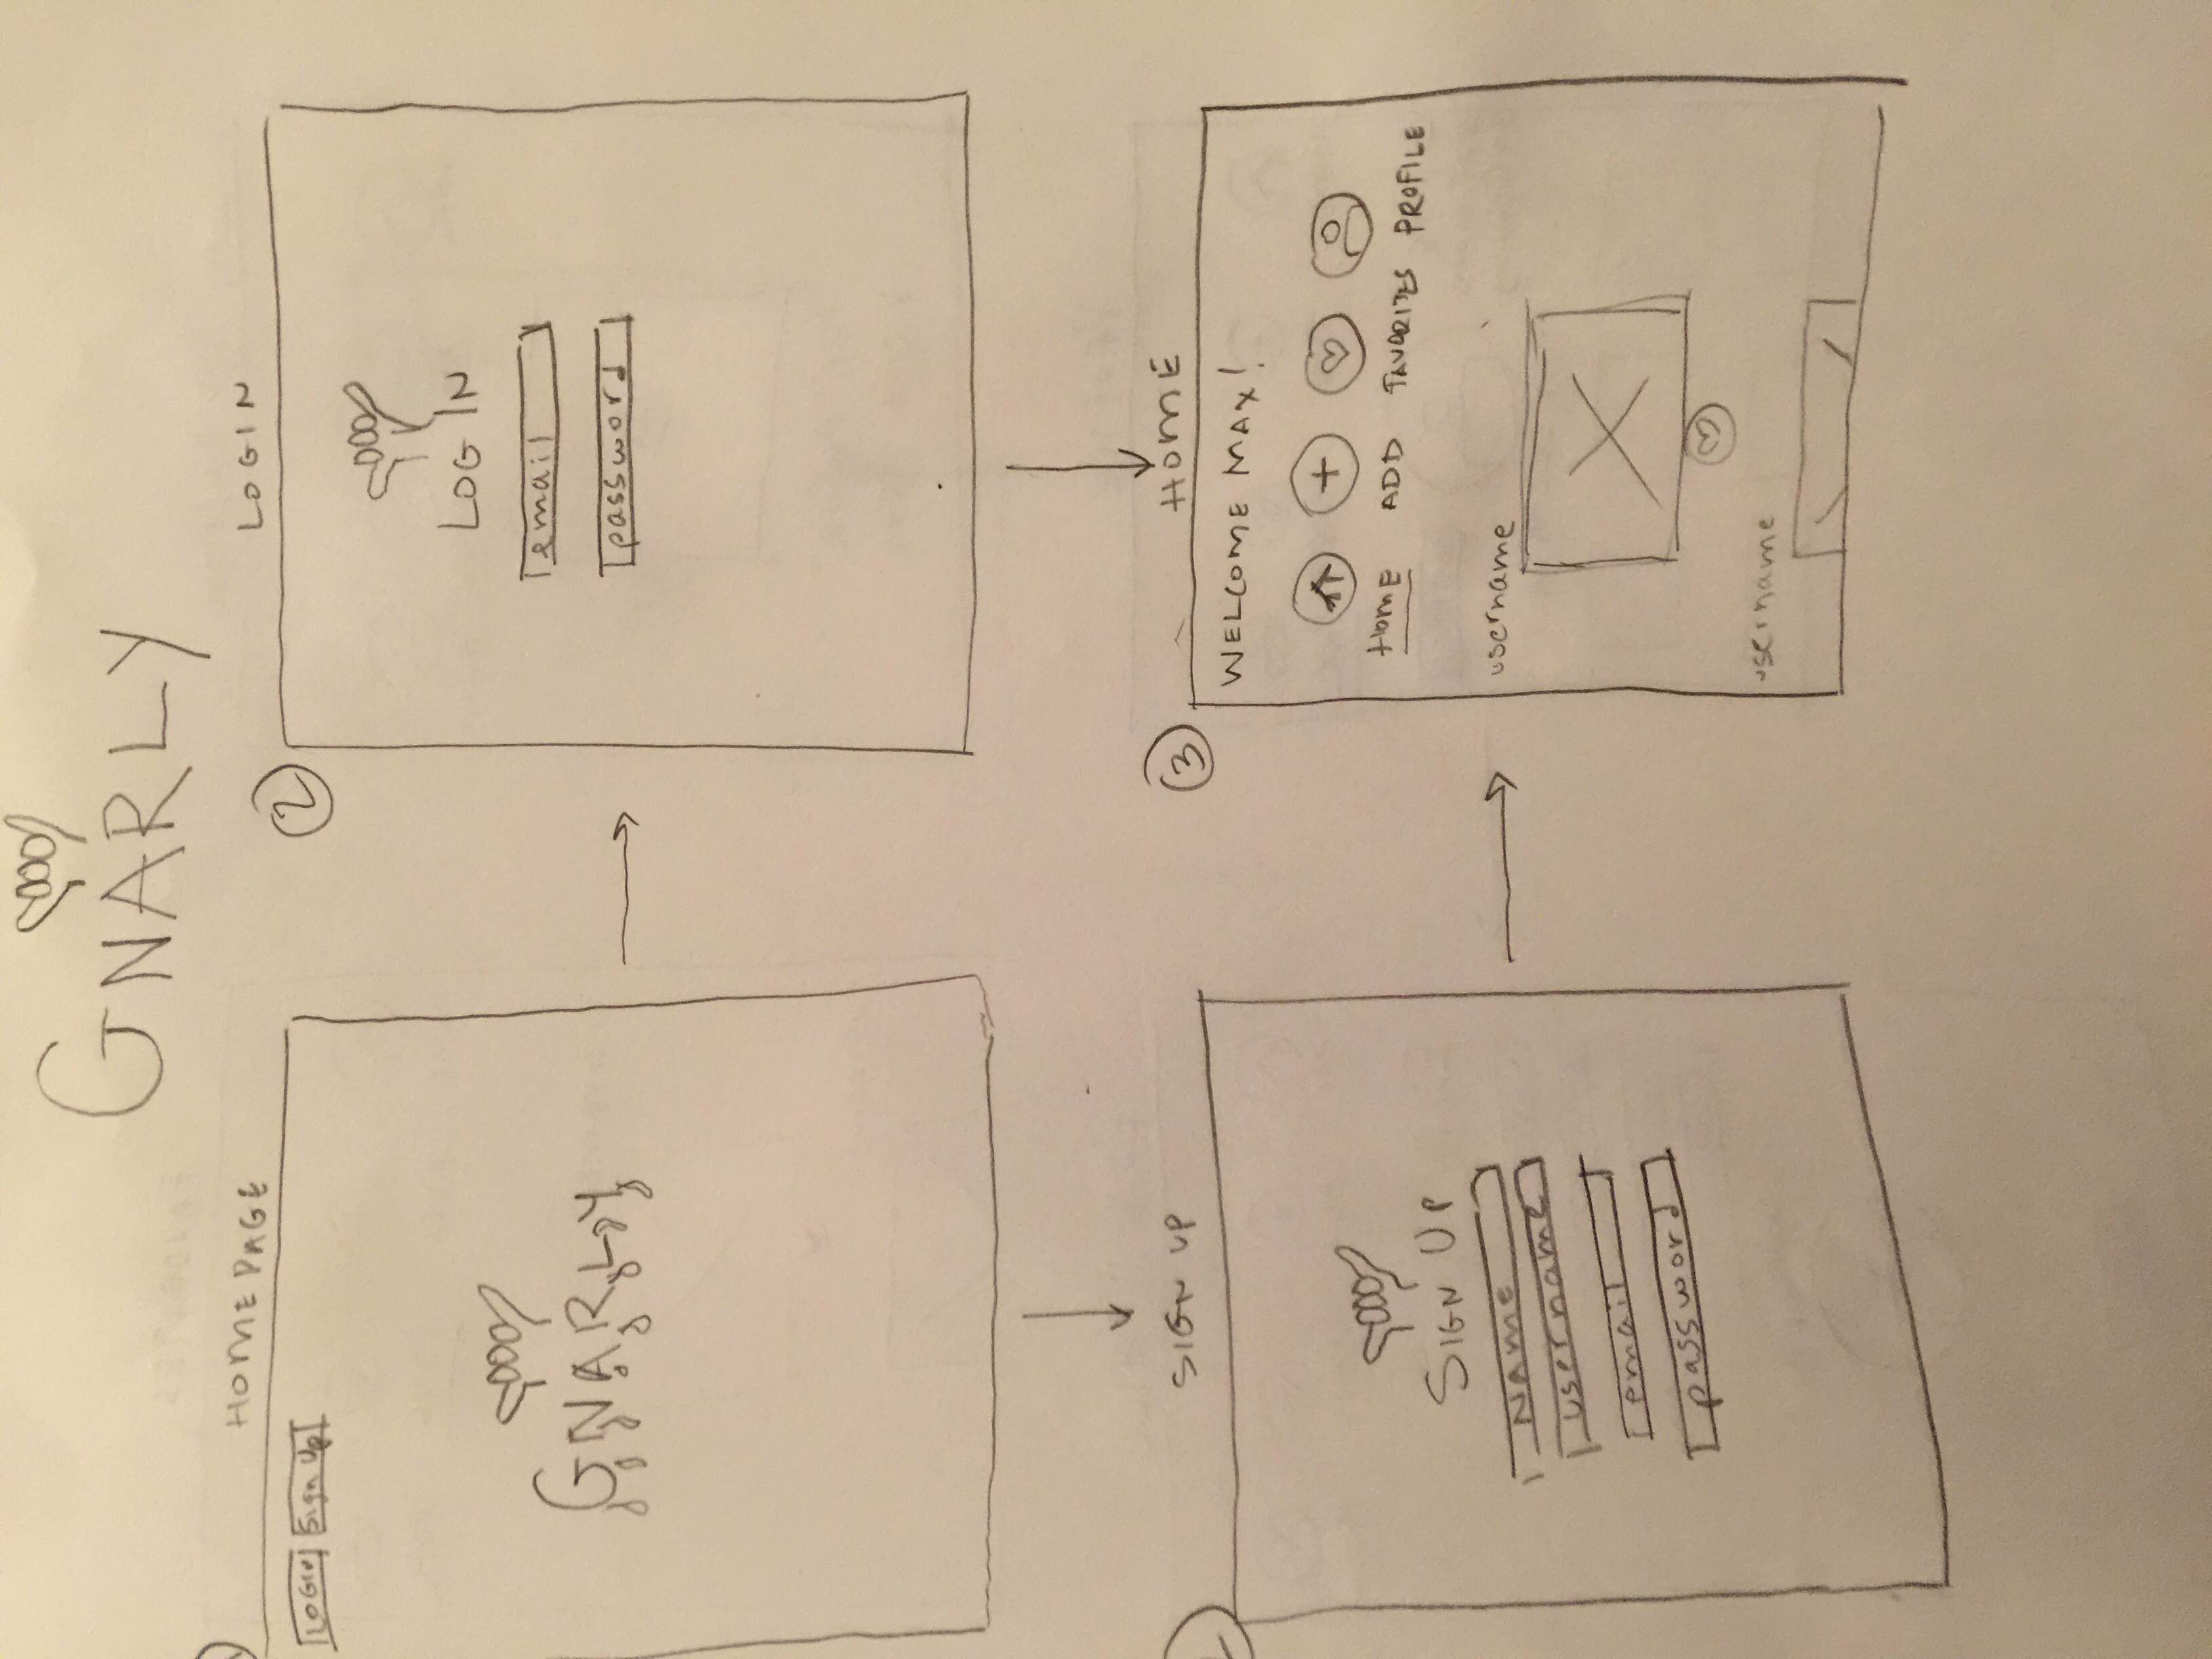 GNARLY
HOMEPAGE
LOGIN Sign Up
GNARLY
2
LOGIN
LOG IN
email
password
SIGN UP
SIGN UP
NAME
username
email
password
3
HOME
WELCOME MAX!
HOME ADD FAVORITES PROFILE
username
username